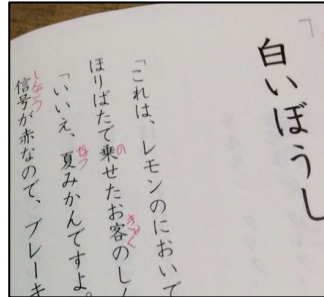 白いぼうし
「これは、レモンのにおいで
ほりばたで乗せたお客のしん
「いいえ、夏みかんですよ。
信号が赤なので、ブレーキ